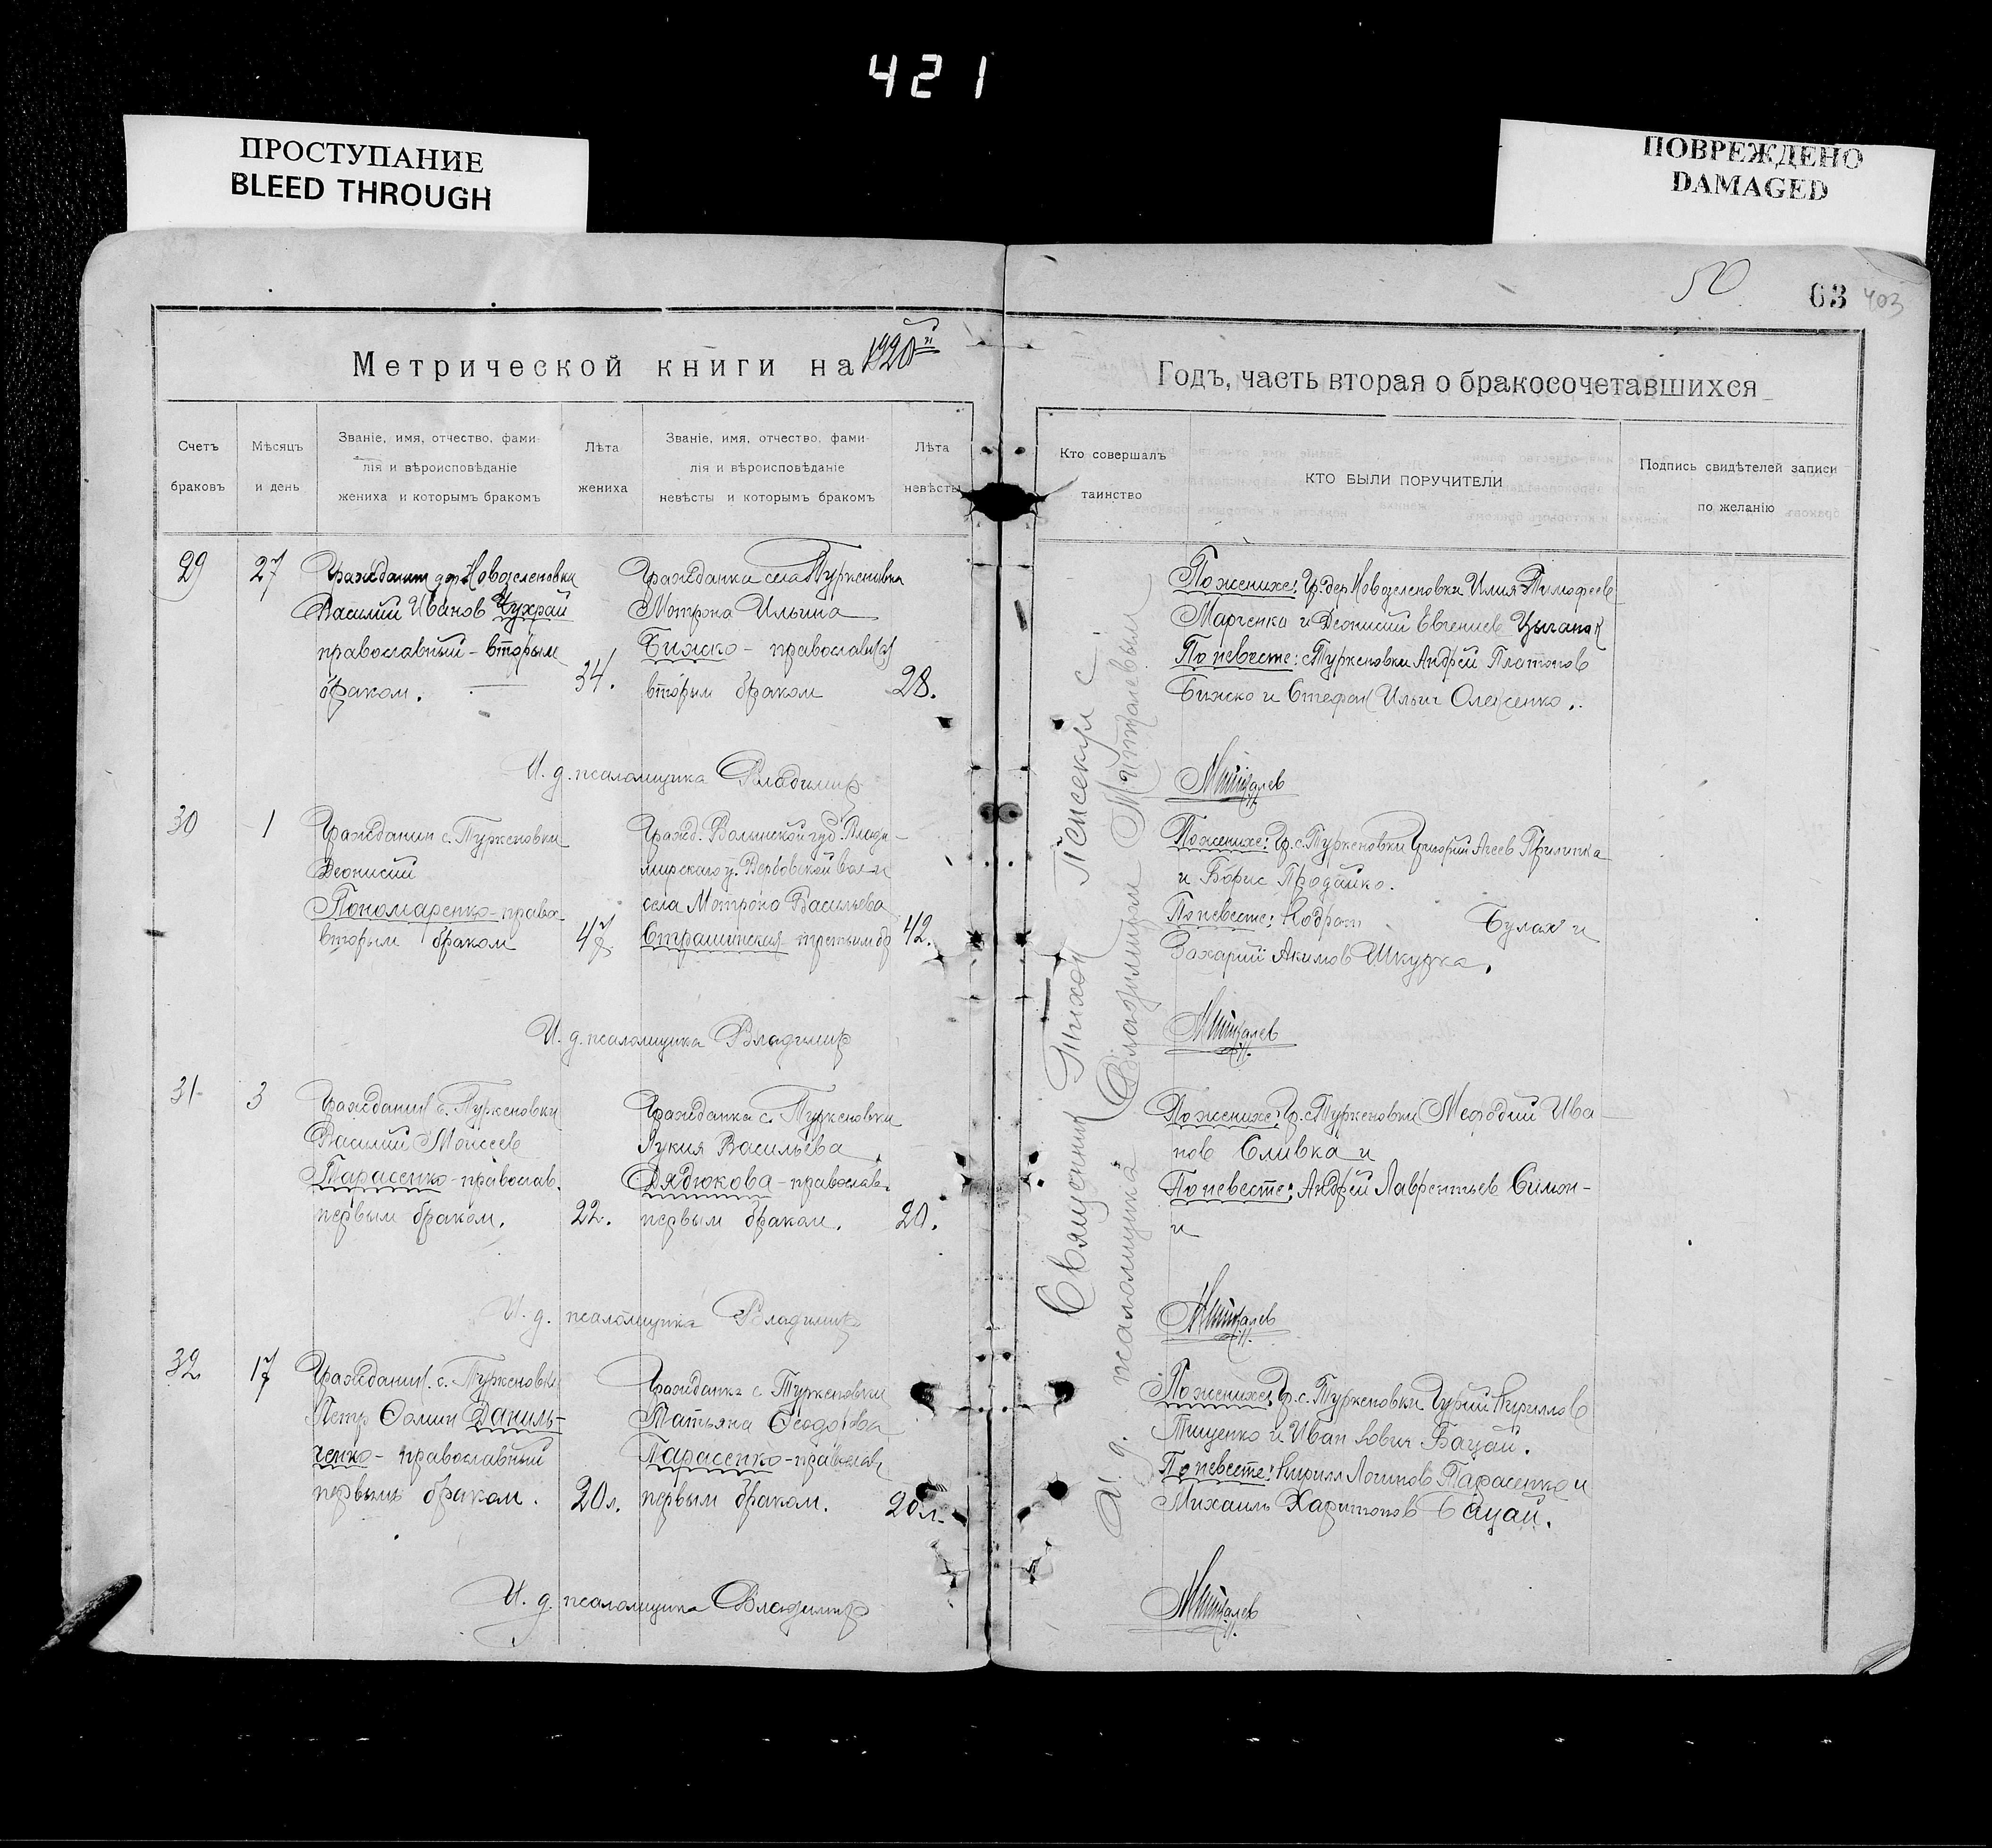 421
ПРОСТУПАНИЕ
BLEED THROUGH
ПОВРЕЖДЕНО
DAMAGED
50
63
403
Метрической книги на 1920й
Годъ, часть вторая о бракосочетавшихся
Счетъ браковъ
Мѣсяцъ и день
Званіе, имя, отчество, фами-
лія и вѣроисповѣданіе
жениха и которымъ бракомъ
Лѣта жениха
Званіе, имя, отчество, фами-
лія и вѣроисповѣданіе
невѣсты и которымъ бракомъ
Лѣта невѣсты
Кто совершалъ таинство
КТО БЫЛИ ПОРУЧИТЕЛИ
Подпись свидѣтелей записи
по желанію
29
27
Гражданин дер. Новоселеновки
Василий Иванов Чухрай
православный - вторым
браком.
34.
Гражданка села Туркеновки
Мотрона Ильина
Бижко - православн
вторым браком
28.
По женихе: Гр. дер Новоселеновки Илия Тимофеев
Марченко и Деонисий Евгениев Цыганок
По невесте: с Туркеновки Андрей Платонов
Бижко и Стефан Ильич Олексенко.
И. д. псаломщика Владимир
30
1
Гражданин с. Туркеновки
Деонисий
Пономаренко - право
вторым браком
47
Гражд. Волынской губ. Влади-
мирскаго у. Вербовской вол и
села Мотрона Васильева
Страшинская третьим бр
42.
По женихе: Гр. с. Туркеновки Григорий Агеев Прилипка
и Борис Продайко.
По невесте: Кодрат Булах и
Захарий Акимов Шкурка.
И. д. псаломщика Владимир
31
3
Гражданин с. Туркеновки
Василий Моисеев
Тарасенко - православ.
первым браком.
22.
Гражданка с. Туркеновки
Лукия Васильева
Дядюкова - православ.
первым браком.
20.
По женихе: Гр. с Туркеновки Мефодий Ива-
нов Сливка и
По невесте: Андрей Лаврентьев Симон-
и
И. д. псаломщика Владимир
32
17
Гражданин. с. Туркеновки
Петр Фомин Даниль-
ченко - православный
первымъ браком.
20 л.
Гражданка с Туркеновки
Татьяна Феодорова
Тарасенко - православ
первым браком.
20 л.
По женихе: Гр. с. Туркеновки Гурий Кириллов
Тищенко и Иван Бацай.
По невесте: Кирилл Логинов Тарасенко и
Михаиль Харитонов Бацай.
И. д. псаломщика Владимир
Священник Тихон с
И. д. псаломщика Владимиром